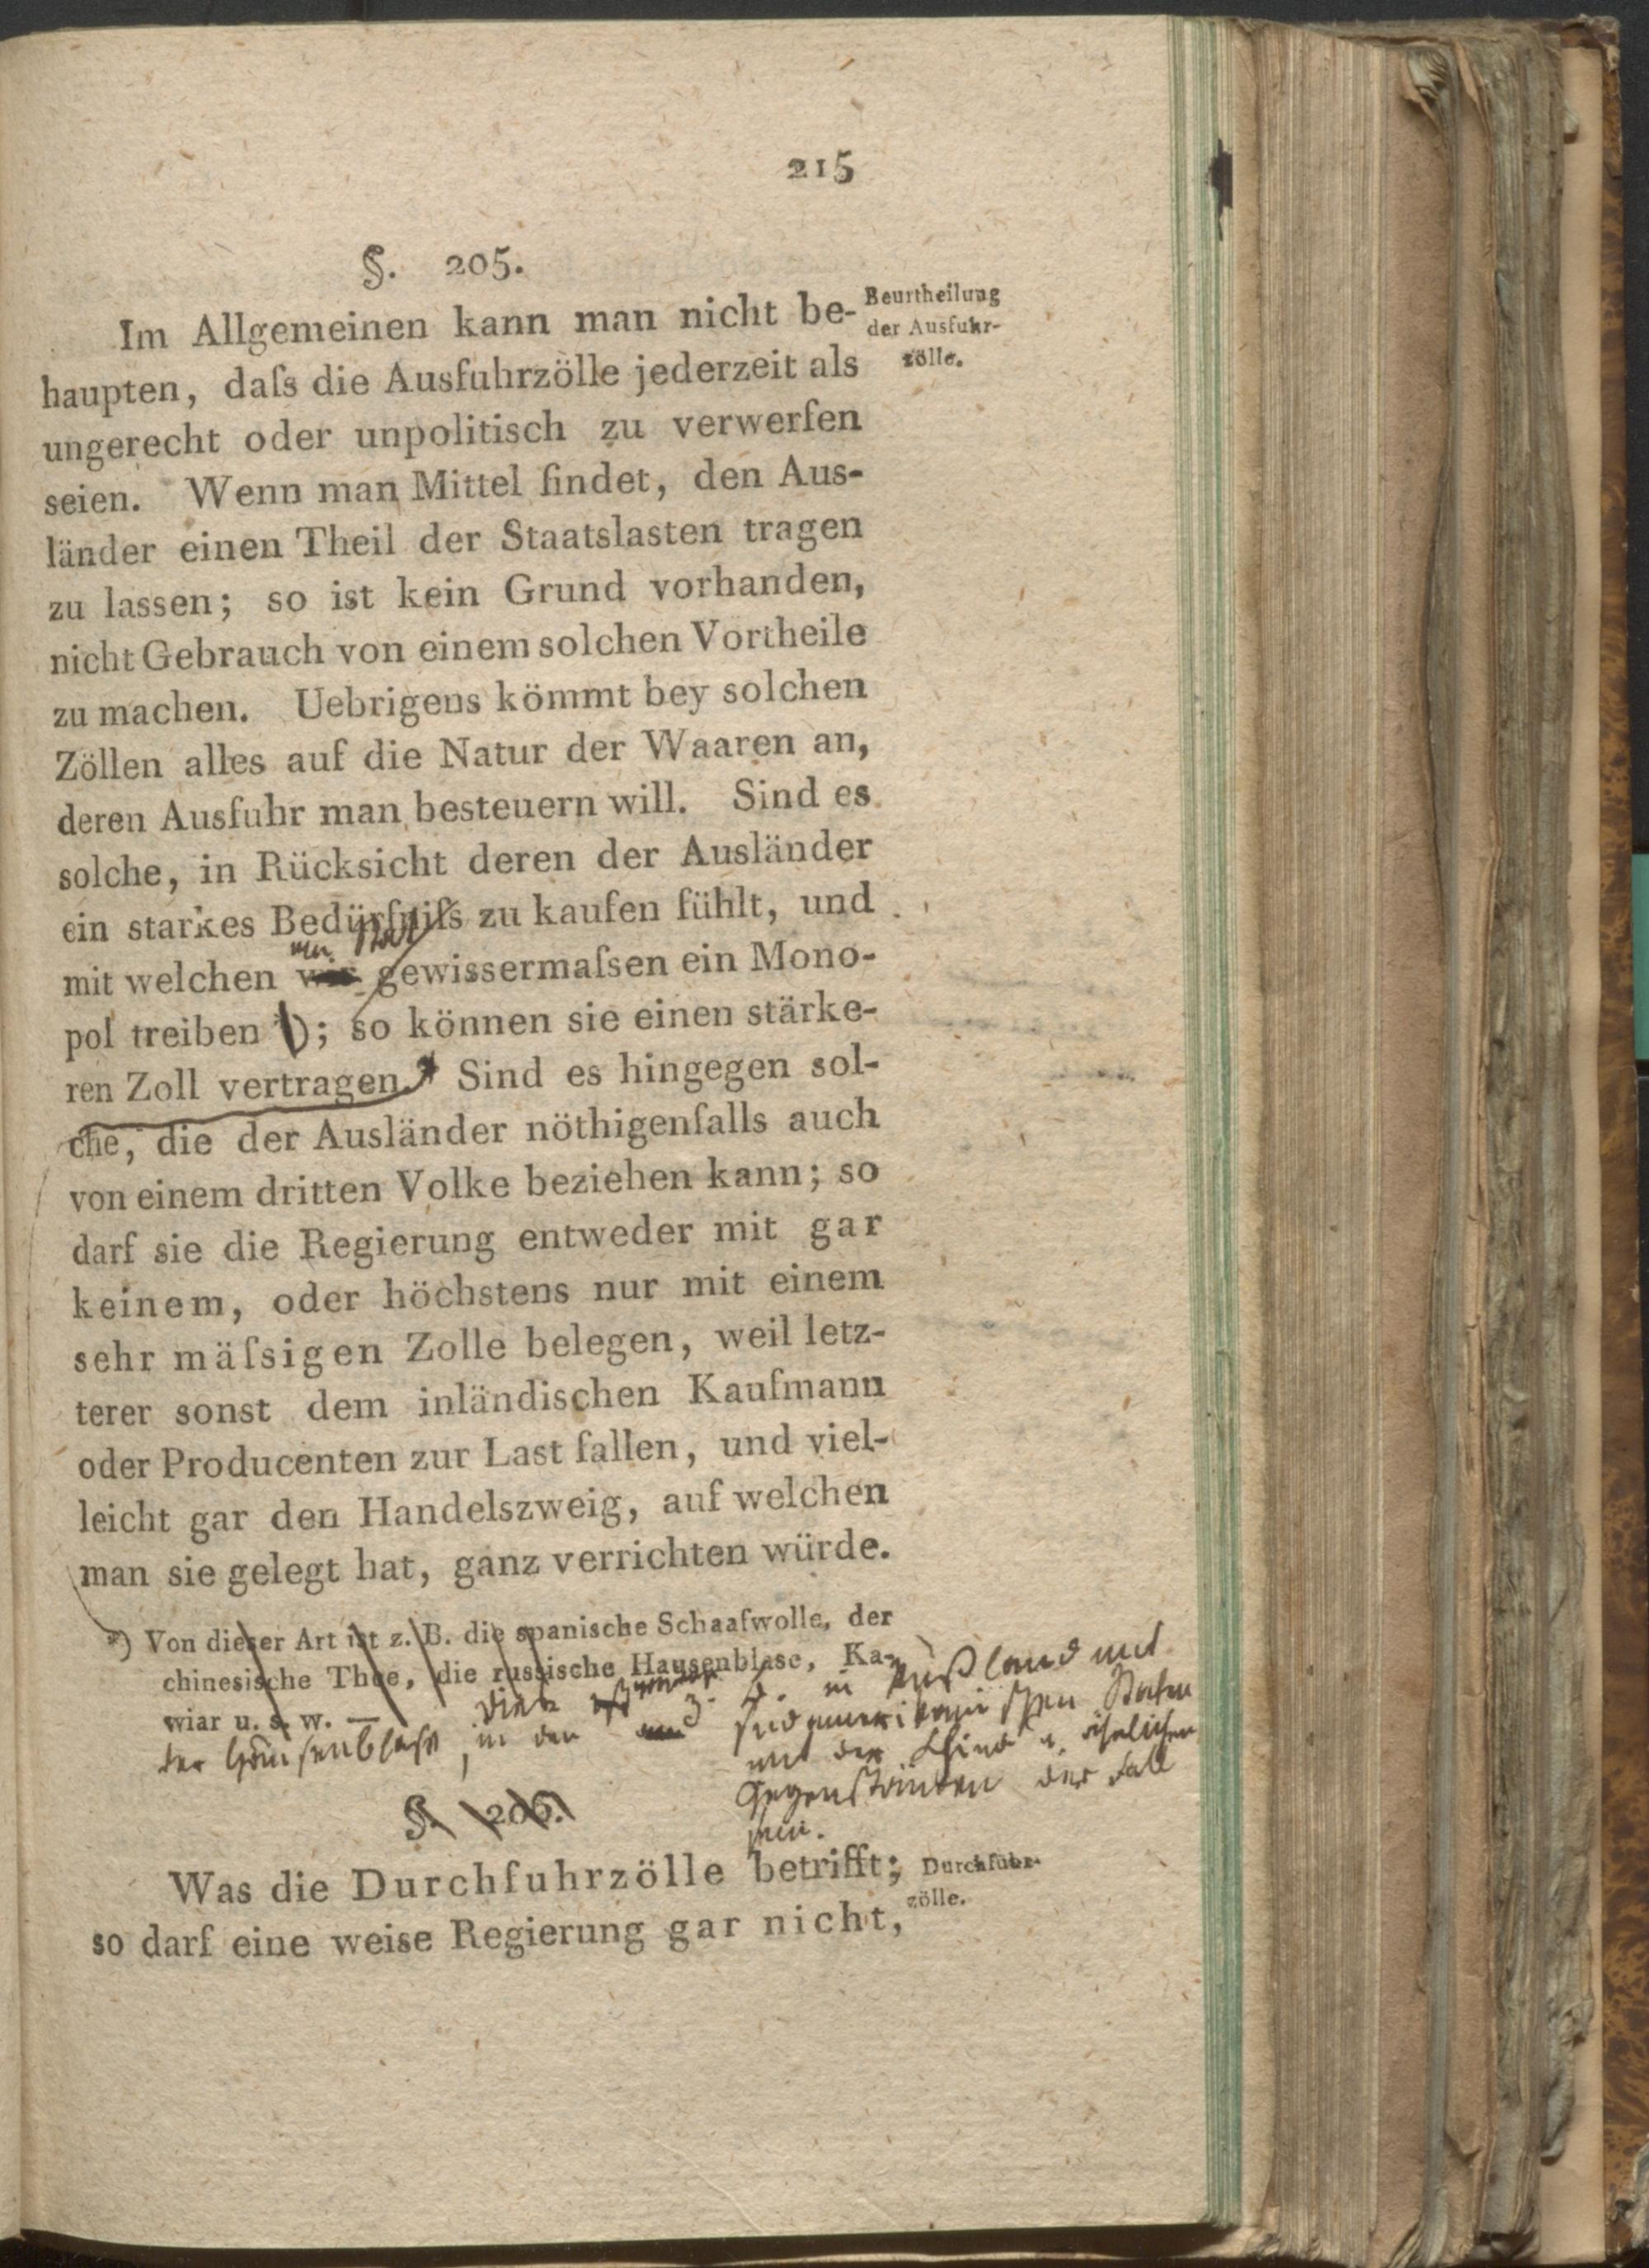 215
§. 205.
Beurtheilung
der Ausfuhr-
zölle.
Im Allgemeinen kann man nicht be-
haupten, daſs die Ausfuhrzölle jederzeit als
ungerecht oder unpolitisch zu verwerfen
seien. Wenn man Mittel findet, den Aus-
länder einen Theil der Staatslasten tragen
zu lassen; so ist kein Grund vorhanden,
nicht Gebrauch von einem solchen Vortheile
zu machen. Uebrigens kömmt bey solchen
Zöllen alles auf die Natur der Waaren an,
deren Ausfuhr man besteuern will. Sind es
solche, in Rücksicht deren der Ausländer
ein starkes Bedürfniſs zu kaufen fühlt, und
ein Staat
mit welchen wir gewissermaſsen ein Mono-
pol treiben *); so können sie einen stärke-
ren Zoll vertragen. Sind es hingegen sol-
che, die der Ausländer nöthigenfalls auch
von einem dritten Volke beziehen kann; so
darf sie die Regierung entweder mit gar
keinem, oder höchstens nur mit einem
sehr mäſsigen Zolle belegen, weil letz-
terer sonst dem inländischen Kaufmann
oder Producenten zur Last fallen, und viel-
leicht gar den Handelszweig, auf welchen
man sie gelegt hat, ganz verrichten würde.
*) Von dieser Art ist z. B. die spanische Schaafwolle, der
chinesische Thee, die russische Hausenblase, Ka-
wiar u. s. w. —
Dies z. B. in Rußland mit
der Hausenblase, in den südamerikanischen Staaten
mit der China u. ähnlichen
Gegenständen der Fall
sein.
§. 206.
Durchfuhr-
zölle.
Was die Durchfuhrzölle betrifft;
so darf eine weise Regierung gar nicht,